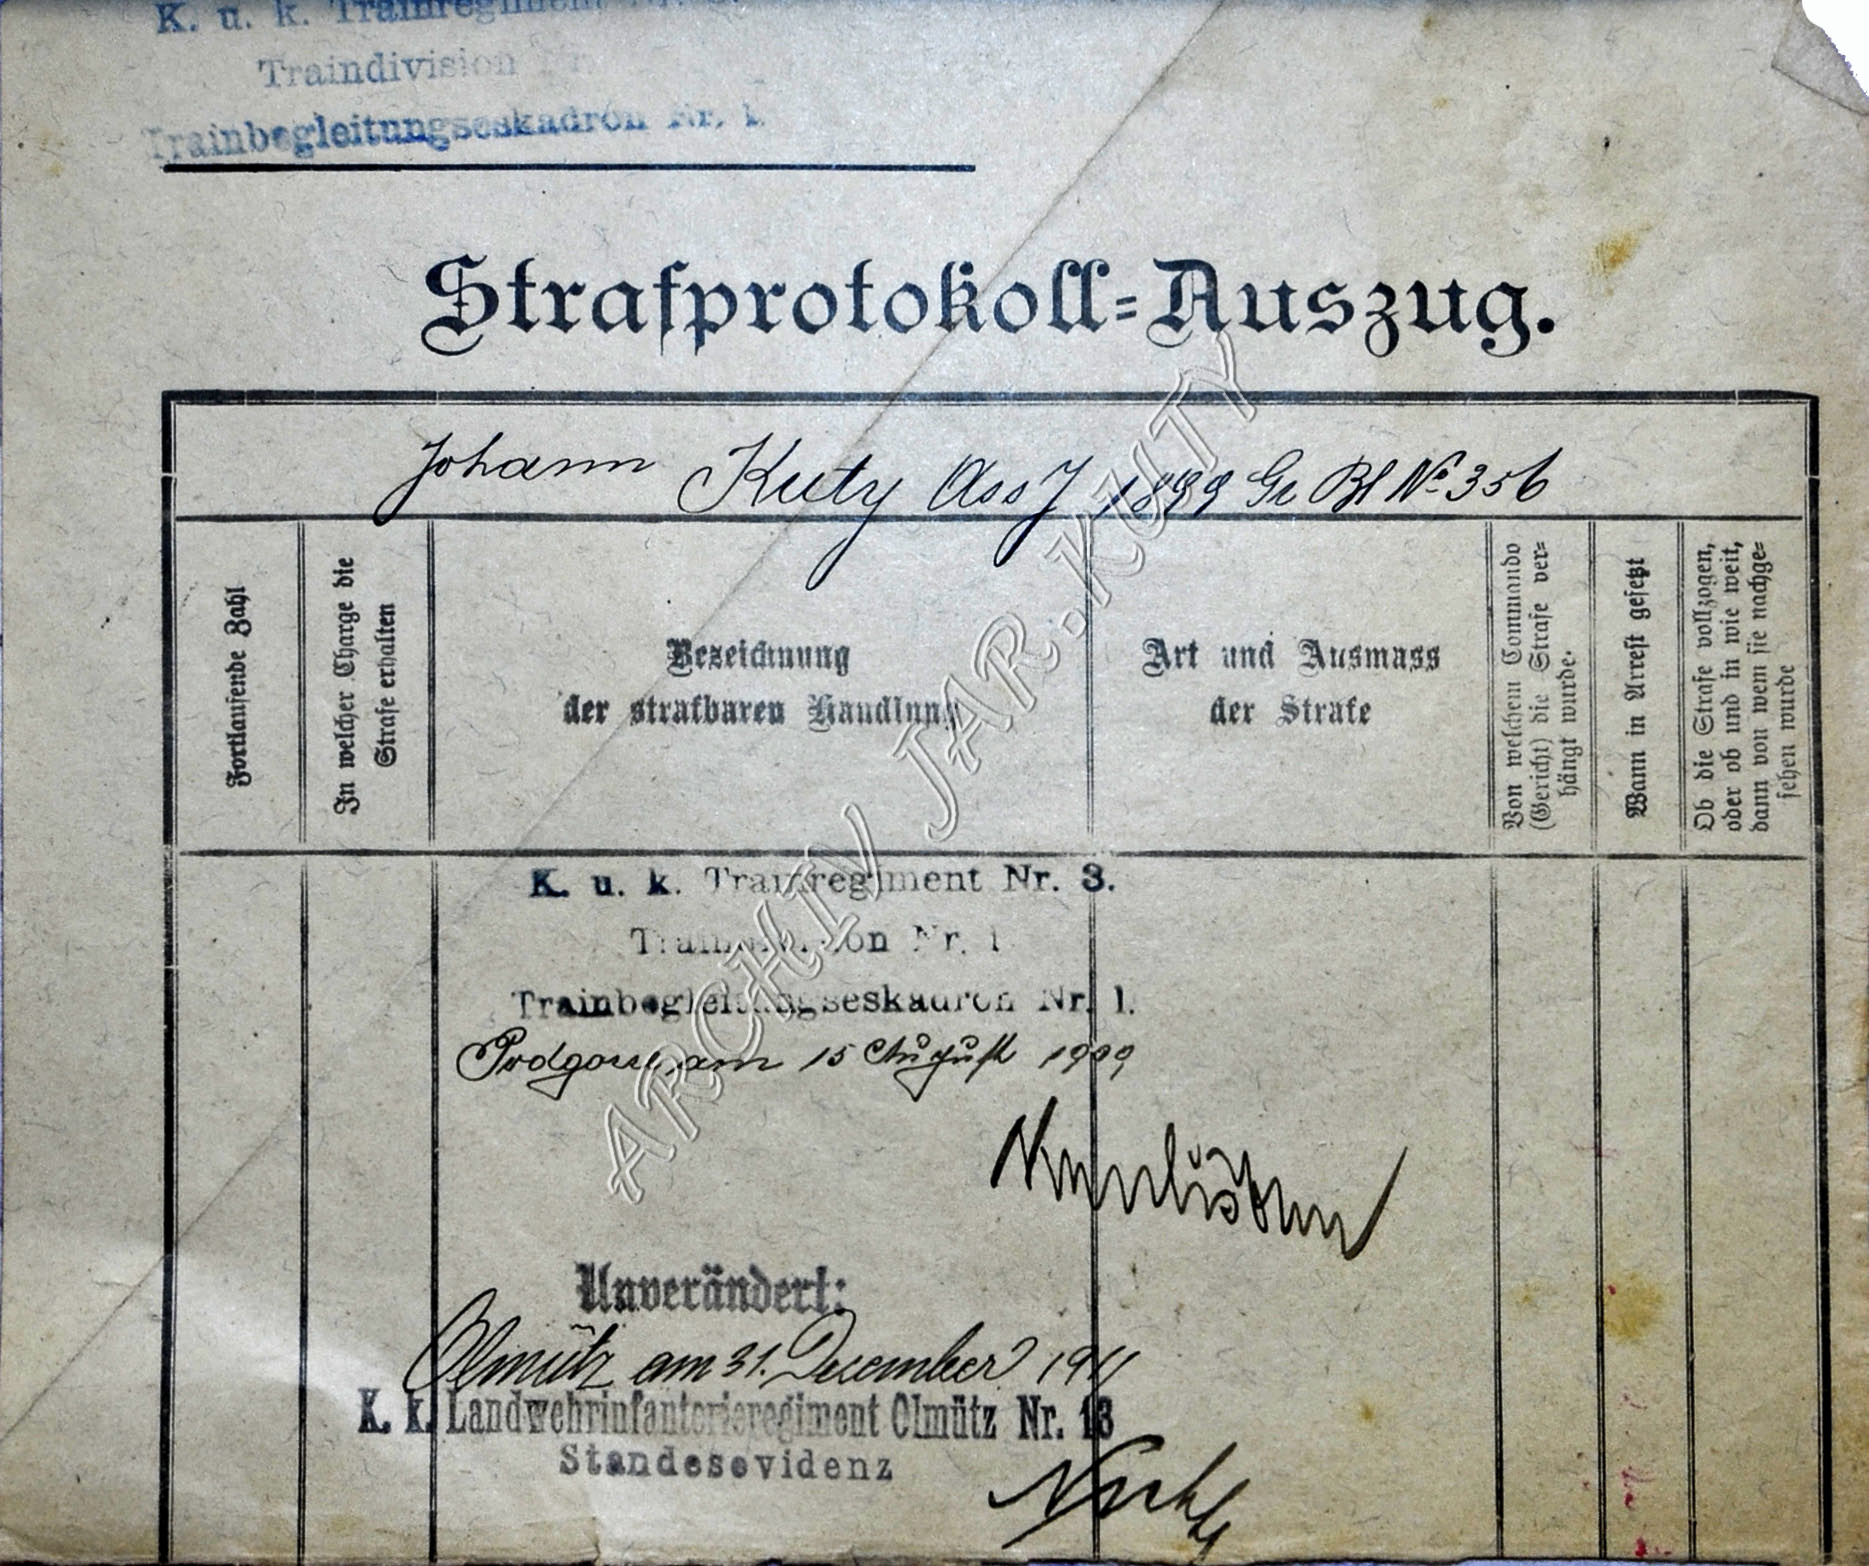 K. u. k. Trainregiment Nr. 3.
Traindivision Nr.
Trainbegleitungseskadron Nr. 1.
Strafprotokoll=Auszug.
Johann Kuty Ass J 1899 Gr Bl No 356
Fortlaufende Zahl
In welcher Charge die
Strafe erhalten
Bezeichnung
der strafbaren Handlung
Art und Ausmass
der Strafe
Von welchem Commando
(Gericht) die Strafe ver=
hängt wurde.
Wann in Arrest gesetzt
Ob die Strafe vollzogen,
oder ob und in wie weit,
dann von wem sie nachge=
sehen wurde
K. u. k. Trainregiment Nr. 3.
Traindivision Nr. 1
Trainbegleitungseskadron Nr. 1.
am 15 August 1909
Unverändert:
Olmütz am 31. December 1911
K. k. Landwehrinfanterieregiment Olmütz Nr. 13
Standesevidenz
ARCHIV JAR. KUTY